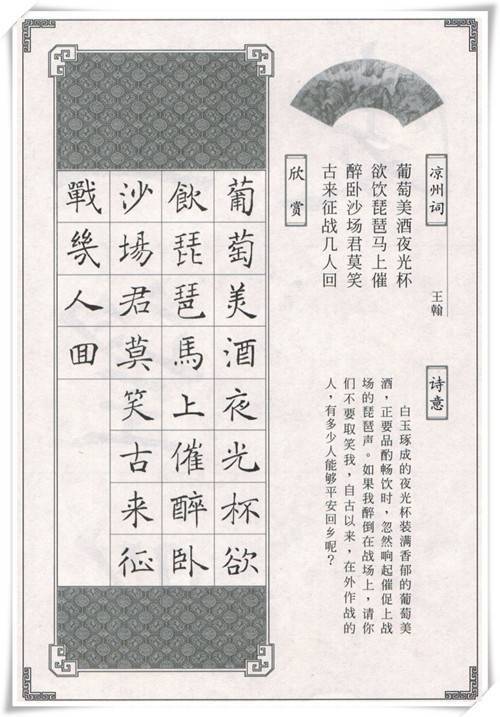 凉州词
王翰
葡萄美酒夜光杯
欲饮琵琶马上催
醉卧沙场君莫笑
古来征战几人回
欣赏
诗意
白玉琢成的夜光杯装满香郁的葡萄美
酒，正要品酌畅饮时，忽然响起催促上战
场的琵琶声。如果我醉倒在战场上，请你
们不要取笑我，自古以来，在外作战的
人，有多少人能够平安回乡呢？
葡萄美酒夜光杯欲
飲琵琶馬上催醉卧
沙場君莫笑古来征
戰幾人囬